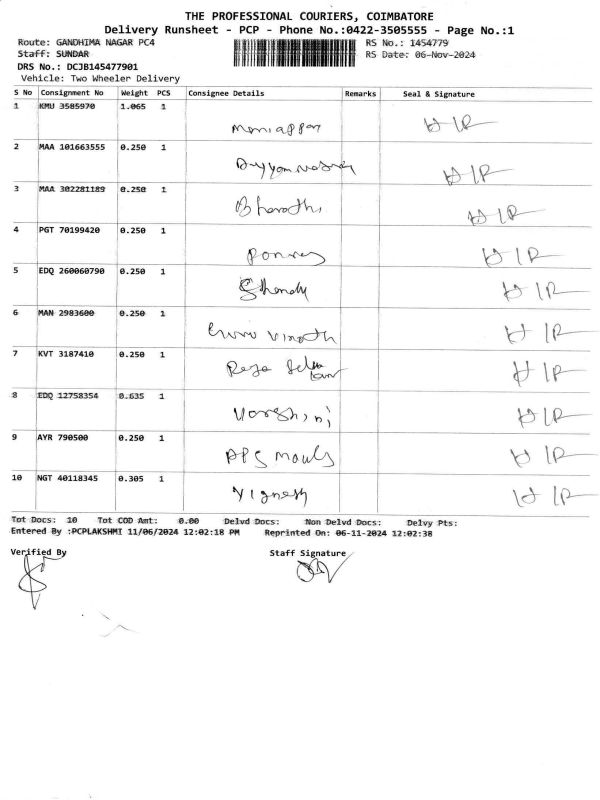 THE PROFESSIONAL COURIERS, COIMBATORE
Delivery Runsheet - PCP - Phone No.:0422-3505555 - Page No.:1
Route: GANDHIMA NAGAR PC4 RS No.: 1454779
Staff: SUNDAR RS Date: 06-Nov-2024
DRS No.: DCJB145477901
Vehicle: Two Wheeler Delivery
S No Consignment No Weight PCS Consignee Details Remarks Seal & Signature
1 KMU 3505970 1.065 1
Maniappan H/R
2 MAA 101663555 0.250 1
H/R
3 MAA 302281189 0.250 1
Bharathi H/R
4 PGT 70199420 0.250 1
H/R
5 EDQ 260060790 0.250 1
H/R
6 MAN 2983600 0.250 1
Guru Vinoth H/R
7 KVT 3187410 0.250 1
H/R
8 EDQ 12758354 0.635 1
Varshini H/R
9 AYR 790500 0.250 1
APS Mouls H/R
10 NGT 40118345 0.305 1
Vignesh H/R
Tot Docs: 10 Tot COD Amt: 0.00 Delvd Docs: Non Delvd Docs: Delvy Pts:
Entered By :PCPLAKSHMI 11/06/2024 12:02:18 PM Reprinted On: 06-11-2024 12:02:38
Verified By Staff Signature